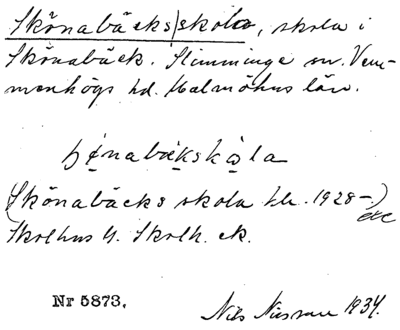 Skönabäcks/skola, skola i
Skönabäck. Slimminge sn. Vem-
menhögs hd. Malmöhus län.
(Skönabäcks skola bb. 1928–)
Skolhus H. Skolh. ek.
Nr 5873.
Nils 1934.